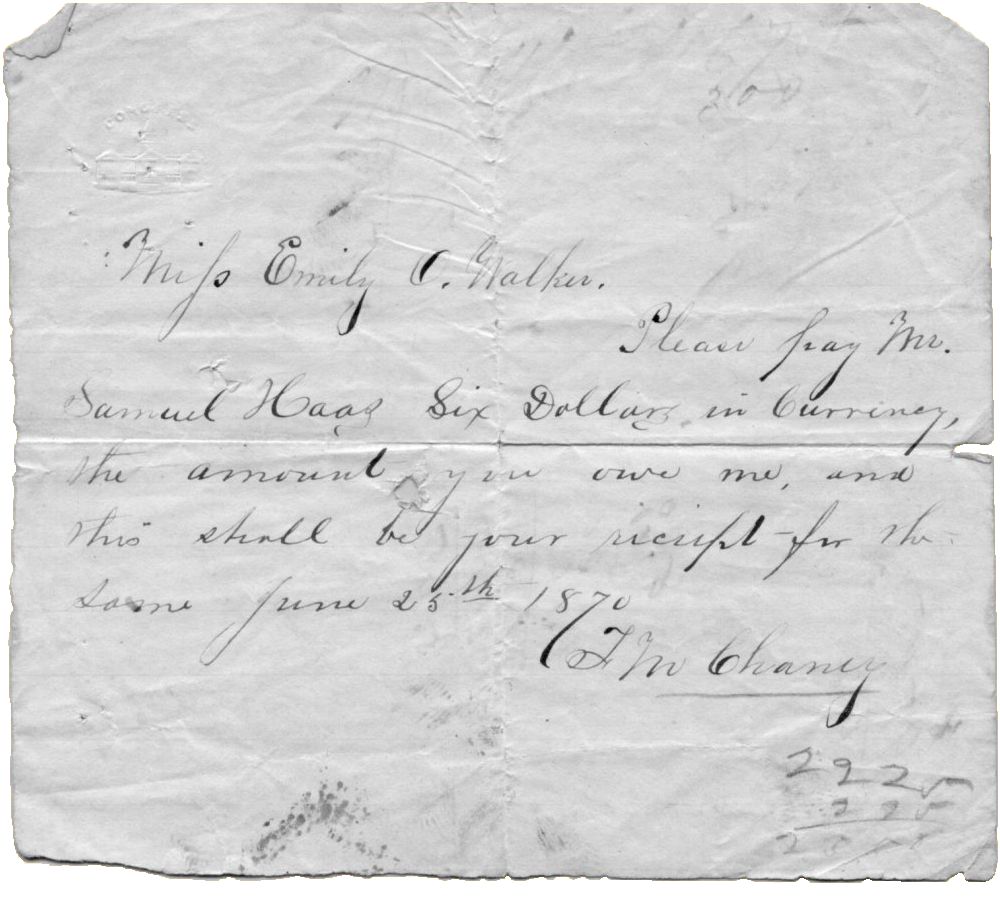 200
CONGRESS
Miss Emily C. Walker.
Please pay Mr.
Samuel Haas Six Dollars in Currency,
the amount you owe me, and
this shall be your reciept for the
same June 25th 1870
F M Chaney
2925
225